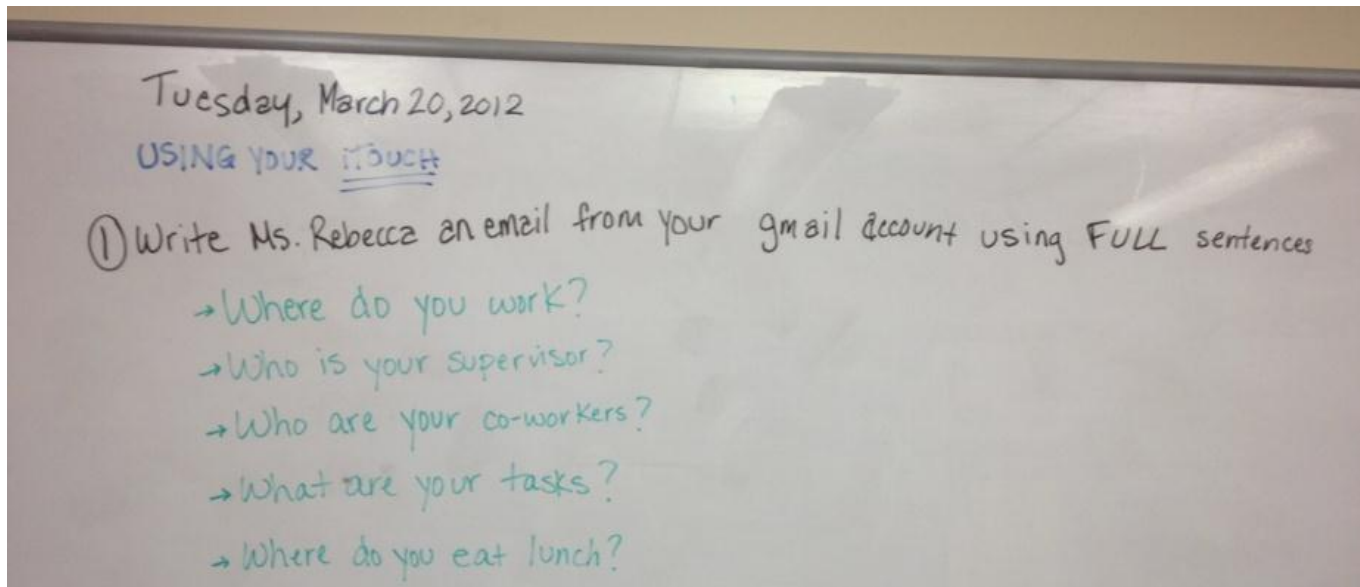 Tuesday, March 20, 2012
USING YOUR iTOUCH
① Write Ms. Rebecca an email from your gmail account using FULL sentences
→ Where do you work?
→ Who is your supervisor?
→ Who are your co-workers?
→ What are your tasks?
→ Where do you eat lunch?